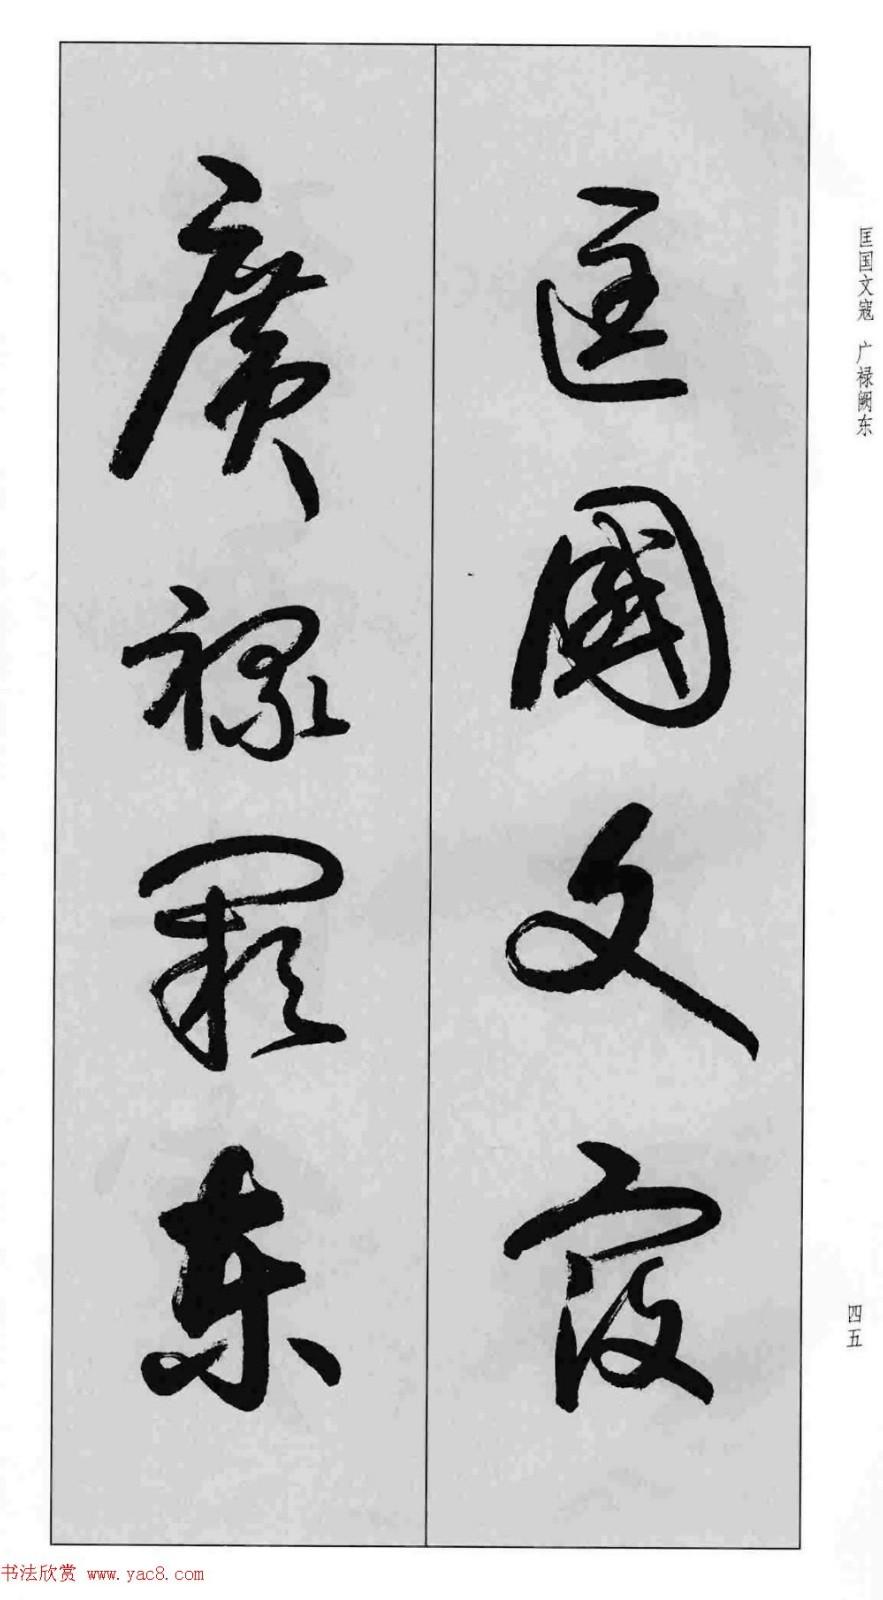 匡国文寇 广禄阙东
匡國文寇
廣禄阙东
四五
书法欣赏 www.yac8.com